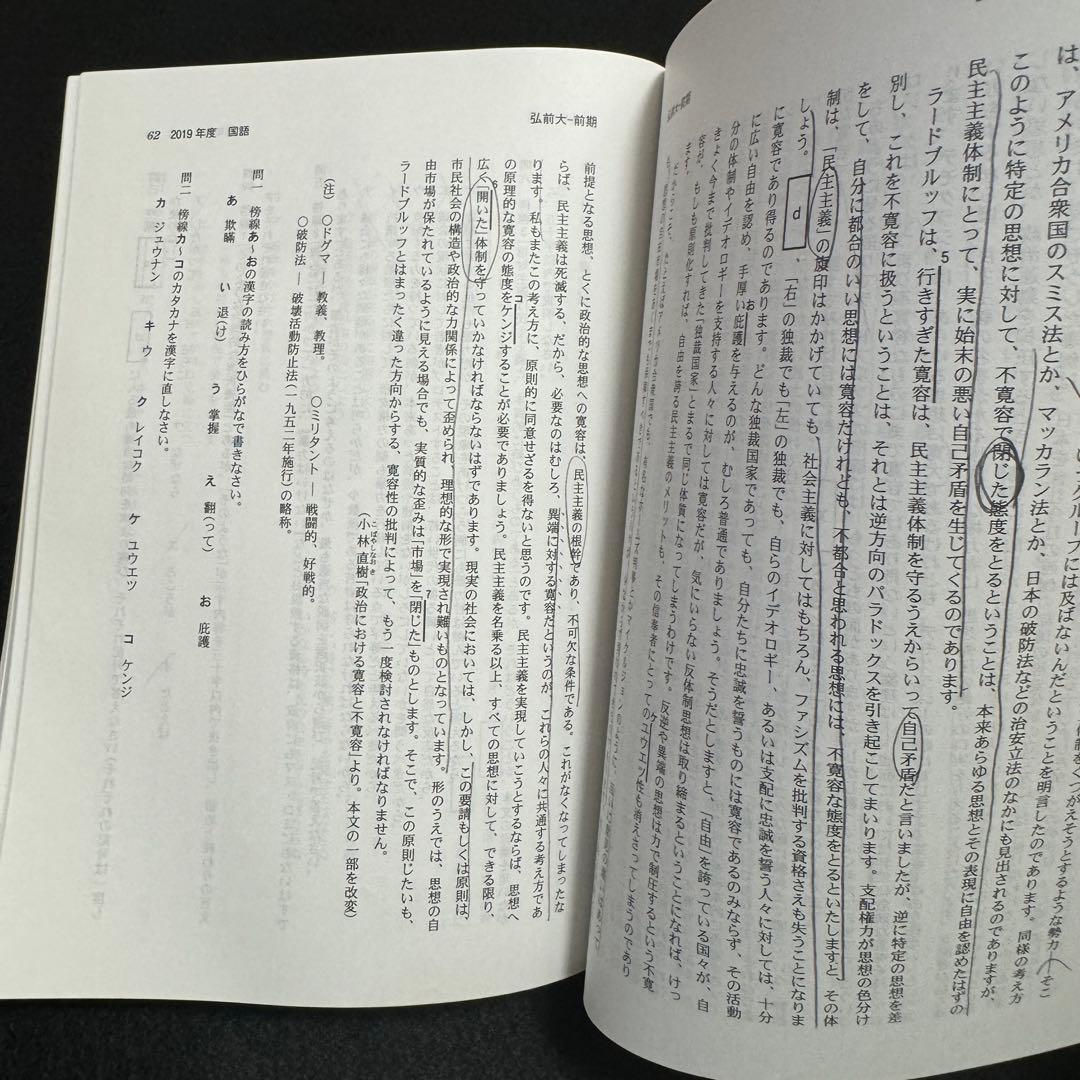 は、アメリカ合衆国のスミス法とか、マッカラン法とか、日本の破防法などの治安立法のなかにも見出されるのであります。同様の考え方
このように特定の思想に対して、不寛容で閉じた態度をとるということは、本来あらゆる思想とその表現に自由を認めたはずの
民主主義体制にとって、実に始末の悪い自己矛盾を生じてくるのであります。
ラードブルッフは、行きすぎた寛容は、民主主義体制を守るうえからいって自己矛盾だと言いましたが、逆に特定の思想を差
5
別し、これを不寛容に扱うということは、それとは逆方向のパラドックスを引き起こしてまいります。支配権力が思想の色分け
をして、自分に都合のいい思想には寛容だけれども、不都合と思われる思想には、不寛容な態度をとるといたしますと、その体
制は、「民主主義」の旗印はかかげていても、社会主義に対してはもちろん、ファシズムを批判する資格さえも失うことになりま
しょう。 d 、「右」の独裁でも「左」の独裁でも、自らのイデオロギー、あるいは支配に忠誠を誓う人々に対しては、十分
に寛容であり得るのであります。どんな独裁国家であっても、自分たちに忠誠を誓うものには寛容であるのみならず、その活動
に広い自由を認め、手厚い庇護を与えるのが、むしろ普通でありましょう。そうだとしますと、「自由」を誇っている国々が、自
お
分の体制やイデオロギーを支持する人々に対しては寛容だが、気にいらない反体制思想は取り締まるということになれば、けっ
きょく今まで批判してきた「独裁国家」とまるで同じ体質になってしまうわけです。反逆や異端の思想は力で制圧するという不寛
容が、もしも原則化すれば、自由を誇る民主主義のメリットも、その信奉者にとってのユウエツ性も消えさってしまうのであり
ケ
ます。
弘前大-前期
62 2019年度 国語
前提となる思想、とくに政治的な思想への寛容は、民主主義の根幹であり、不可欠な条件である。これがなくなってしまったな
らば、民主主義は死滅する、だから、必要なのはむしろ、異端に対する寛容だというのが、これらの人々に共通する考え方であ
ります。私もまたこの考え方に、原則的に同意せざるを得ないと思うのです。民主主義を実現していこうとするならば、思想へ
の原理的な寛容の態度をケンジすることが必要でありましょう。民主主義を名乗る以上、すべての思想に対して、できる限り、
コ
広く「開いた」体制を守っていかなければならないはずであります。現実の社会においては、しかし、この要請もしくは原則は、
6
市民社会の構造や政治的な力関係によって歪められ、理想的な形で実現され難いものとなっています。形のうえでは、思想の自
由市場が保たれているように見える場合でも、実質的な歪みは「市場」を「閉じた」ものとします。そこで、この原則じたいも、
7
ラードブルッフとはまったく違った方向からする、寛容性の批判によって、もう一度検討されなければなりません。
(小林直樹「政治における寛容と不寛容」より。本文の一部を改変)
こばやしなおき
(注) ○ドグマ ― 教義、教理。 ○ミリタント ― 戦闘的、好戦的。
○破防法 ― 破壊活動防止法(一九五二年施行)の略称。
問一 傍線あ~おの漢字の読み方をひらがなで書きなさい。
あ 欺瞞 い 退(け) う 掌握 え 翻(って) お 庇護
問二 傍線カ~コのカタカナを漢字に直しなさい。
カ ジュウナン キ ウ ク レイコク ケ ユウエツ コ ケンジ